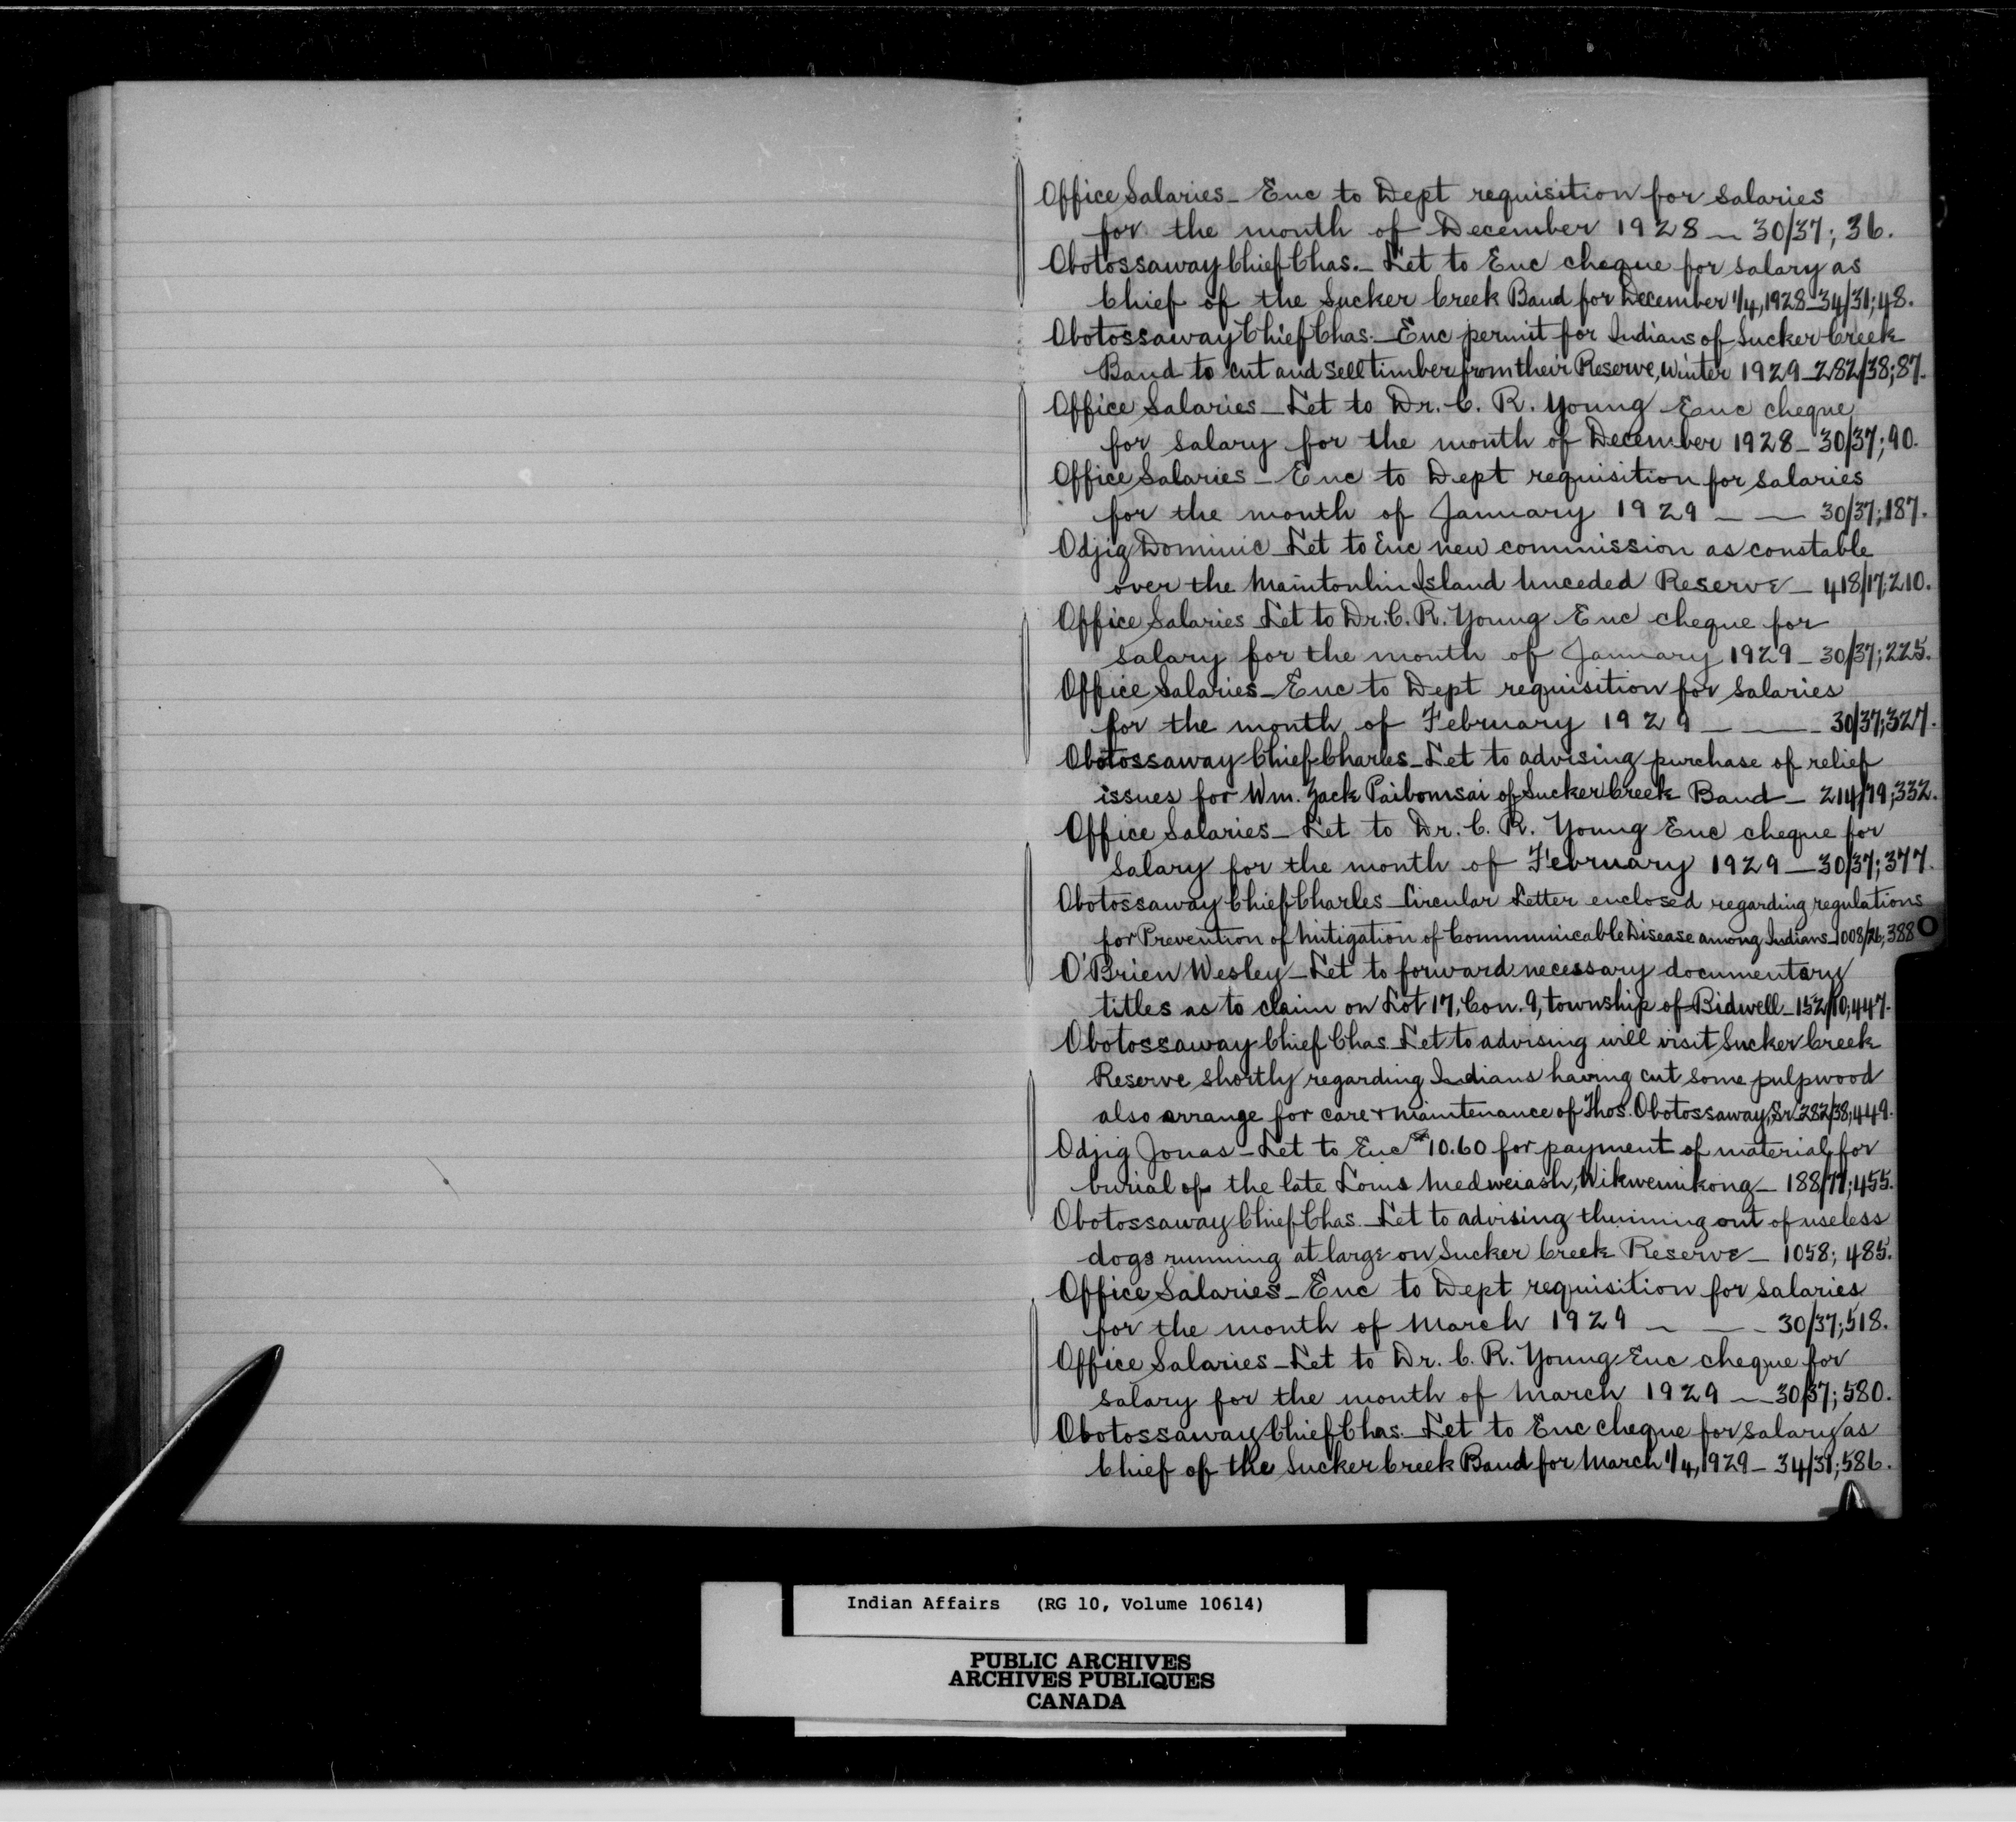 Office Salaries - Enc to Dept requisition for salaries
for the month of December 1928 - 30/37; 36.
Obotossaway Chief Chas. - Let to Enc cheque for salary as
Chief of the Sucker Creek Band for December 1/4, 1928 - 34/31; 48.
Obotossaway Chief Chas. - Enc permit for Indians of Sucker Creek
Band to cut and sell timber from their Reserve, Winter 1929 - 282/38; 87.
Office Salaries - Let to Dr. C. R. Young Enc cheque
for salary for the month of December 1928 - 30/37; 90.
Office Salaries - Enc to Dept requisition for salaries
for the month of January 1929 - - 30/37; 187.
Odjig Dominic - Let to Enc new commission as constable
over the Maintoulin Island Unceded Reserve - 418/17; 210.
Office Salaries - Let to Dr. C. R. Young Enc cheque for
salary for the month of January 1929 - 30/37; 225.
Office Salaries - Enc to Dept requisition for salaries
for the month of February 1929 - - - 30/37; 327.
Obotossaway Chief Charles - Let to advising purchase of relief
issues for Wm. Jack Paibomsai of Sucker Creek Band - 214/79; 332.
Office Salaries - Let to Dr. C. R. Young Enc cheque for
salary for the month of February 1929 - 30/37; 377.
Obotossaway Chief Charles - Circular Letter enclosed regarding regulations
for Prevention of Mitigation of Communicable Disease among Indians - 1008/26; 388
O
O'Brien Wesley - Let to forward necessary documentary
titles as to claim on Lot 17, Con. 9, township of Bidwell - 152/10; 447.
Obotossaway Chief Chas. - Let to advising will visit Sucker Creek
Reserve shortly regarding Indians having cut some pulpwood
also arrange for care & maintenance of Thos. Obotossaway, Sr. 282/38; 449.
Odjig Jonas - Let to Enc $10.60 for payment of material for
burial of the late Louis Medweiash, Wikwemikong - 188/71; 455.
Obotossaway Chief Chas. - Let to advising thinning out of useless
dogs running at large on Sucker Creek Reserve - 1058; 485.
Office Salaries - Enc to Dept requisition for salaries
for the month of March 1929 - - - 30/37; 518.
Office Salaries - Let to Dr. C. R. Young Enc cheque for
salary for the month of March 1929 - 30/37; 580.
Obotossaway Chief Chas. - Let to Enc cheque for salary as
Chief of the Sucker Creek Band for March 1/4, 1929 - 34/31; 586.
Indian Affairs (RG 10, Volume 10614)
PUBLIC ARCHIVES
ARCHIVES PUBLIQUES
CANADA